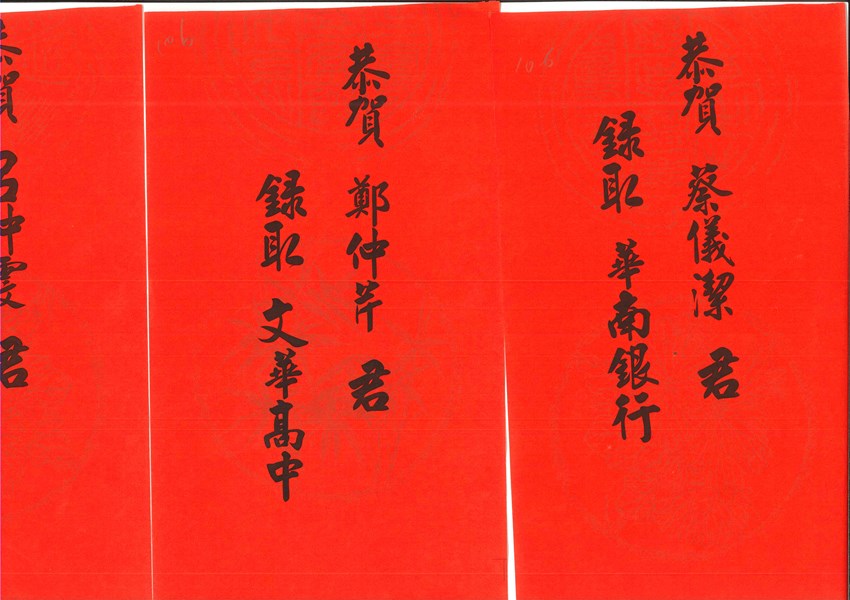 106
恭賀 蔡儀潔 君
録取 華南銀行
106
恭賀 鄭仲芹 君
録取 文華高中
恭賀 呂仲雯 君